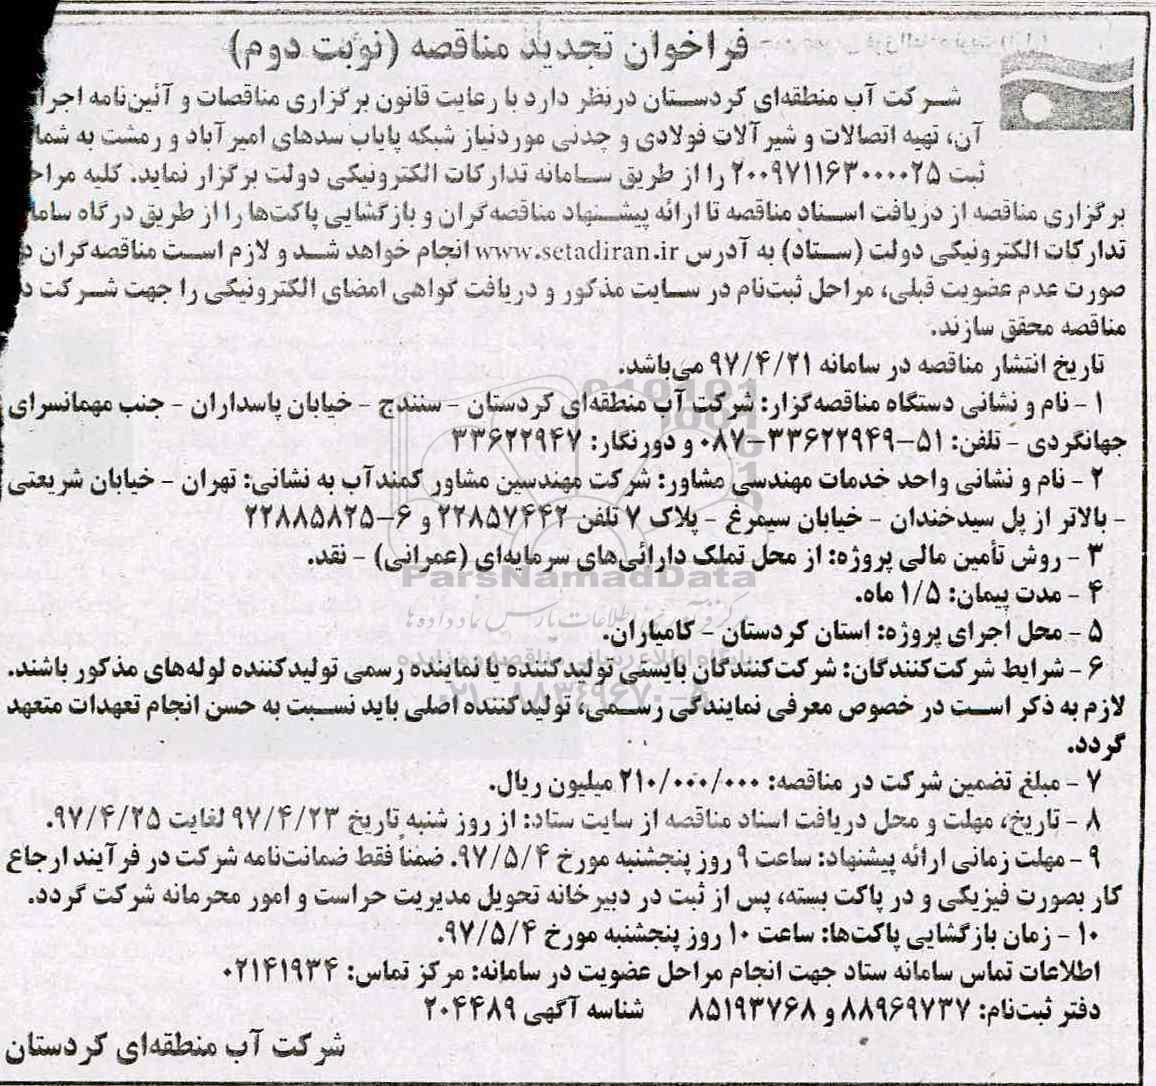 فراخوان تجدید مناقصه (نوبت دوم)
شرکت آب منطقه‌ای کردستان درنظر دارد با رعایت قانون برگزاری مناقصات و آئین‌نامه
آن، تهیه اتصالات و شیرآلات فولادی و چدنی موردنیاز شبکه پایاب سدهای امیرآباد و رمشت به
ثبت ۲۰۰۹۷۱۱۶۳۰۰۰۰۲۵ را از طریق سامانه تدارکات الکترونیکی دولت برگزار نماید. کلیه
برگزاری مناقصه از دریافت اسناد مناقصه تا ارائه پیشنهاد مناقصه‌گران و بازگشایی پاکت‌ها را از طریق درگاه
تدارکات الکترونیکی دولت (ستاد) به آدرس www.setadiran.ir انجام خواهد شد و لازم است مناقصه‌گران
صورت عدم عضویت قبلی، مراحل ثبت‌نام در سایت مذکور و دریافت گواهی امضای الکترونیکی را جهت شرکت
مناقصه محقق سازند.
تاریخ انتشار مناقصه در سامانه ۹۷/۴/۲۱ می‌باشد.
۱ - نام و نشانی دستگاه مناقصه‌گزار: شرکت آب منطقه‌ای کردستان - سنندج - خیابان پاسداران - جنب مهمانسرای
جهانگردی - تلفن: ۵۱-۳۳۶۲۲۹۴۹-۰۸۷ و دورنگار: ۳۳۶۲۲۹۴۷
۲ - نام و نشانی واحد خدمات مهندسی مشاور: شرکت مهندسین مشاور کمندآب به نشانی: تهران - خیابان شریعتی
- بالاتر از پل سیدخندان - خیابان سیمرغ - پلاک ۷ تلفن ۲۲۸۵۷۴۴۲ و ۶-۲۲۸۸۵۸۲۵
۳ - روش تأمین مالی پروژه: از محل تملک دارائی‌های سرمایه‌ای (عمرانی) - نقد.
ParsNamadData
۴ - مدت پیمان: ۱/۵ ماه.
۵ - محل اجرای پروژه: استان کردستان - کامیاران.
۶ - شرایط شرکت‌کنندگان: شرکت‌کنندگان بایستی تولیدکننده یا نماینده رسمی تولیدکننده لوله‌های مذکور باشند.
لازم به ذکر است در خصوص معرفی نمایندگی رسمی، تولیدکننده اصلی باید نسبت به حسن انجام تعهدات متعهد
گردد.
۷ - مبلغ تضمین شرکت در مناقصه: ۲۱۰/۰۰۰/۰۰۰ میلیون ریال.
۸ - تاریخ، مهلت و محل دریافت اسناد مناقصه از سایت ستاد: از روز شنبه تاریخ ۹۷/۴/۲۳ لغایت ۹۷/۴/۲۵.
۹ - مهلت زمانی ارائه پیشنهاد: ساعت ۹ روز پنجشنبه مورخ ۹۷/۵/۴. ضمناً فقط ضمانت‌نامه شرکت در فرآیند ارجاع
کار بصورت فیزیکی و در پاکت بسته، پس از ثبت در دبیرخانه تحویل مدیریت حراست و امور محرمانه شرکت گردد.
۱۰ - زمان بازگشایی پاکت‌ها: ساعت ۱۰ روز پنجشنبه مورخ ۹۷/۵/۴.
اطلاعات تماس سامانه ستاد جهت انجام مراحل عضویت در سامانه: مرکز تماس: ۰۲۱۴۱۹۳۴
دفتر ثبت‌نام: ۸۸۹۶۹۷۳۷ و ۸۵۱۹۳۷۶۸ شناسه آگهی ۲۰۴۴۸۹
شرکت آب منطقه‌ای کردستان